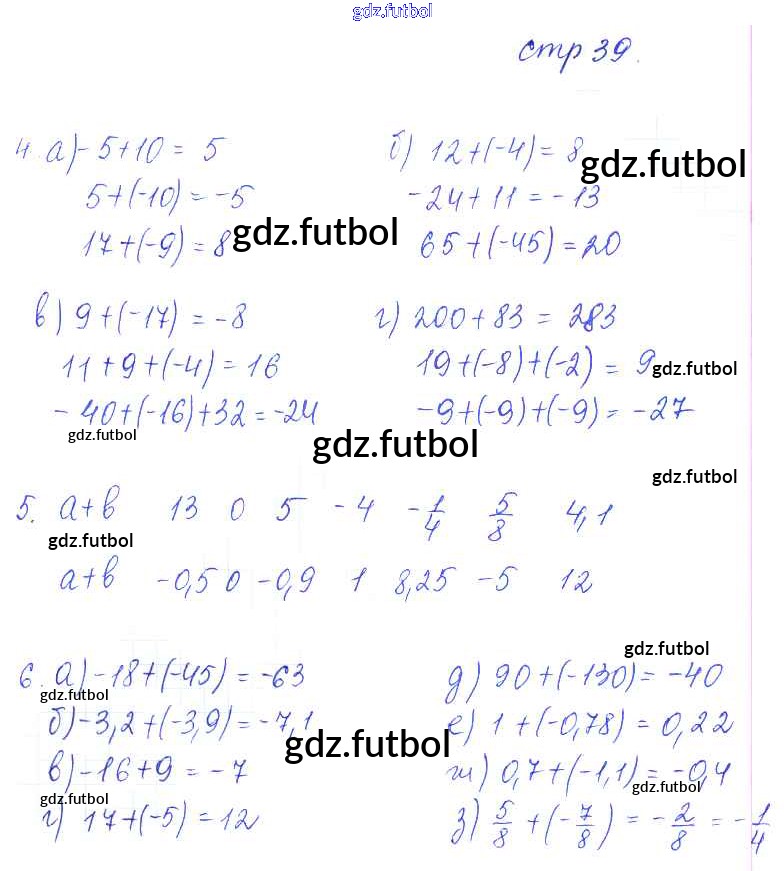 gdz.futbol
стр 39.
4. а) -5+10 = 5 б) 12+(-4) = 8 gdz.futbol
5+(-10) = -5 -24+11 = -13
17+(-9) = 8 gdz.futbol 65+(-45) = 20
в) 9+(-17) = -8 г) 200+83 = 283
11+9+(-4) = 16 19+(-8)+(-2) = 9 gdz.futbol
-40+(-16)+32 = -24 -9+(-9)+(-9) = -27
gdz.futbol gdz.futbol
gdz.futbol
5. a+b 13 0 5 -4 -1/4 5/8 4,1
gdz.futbol
a+b -0,5 0 -0,9 1 8,25 -5 12
gdz.futbol
6. а) -18+(-45) = -63 д) 90+(-130) = -40
gdz.futbol
б) -3,2+(-3,9) = -7,1 е) 1+(-0,78) = 0,22
gdz.futbol
в) -16+9 = -7 ж) 0,7+(-1,1) = -0,4
gdz.futbol gdz.futbol
г) 17+(-5) = 12 з) 5/8 + (-7/8) = -2/8 = -1/4